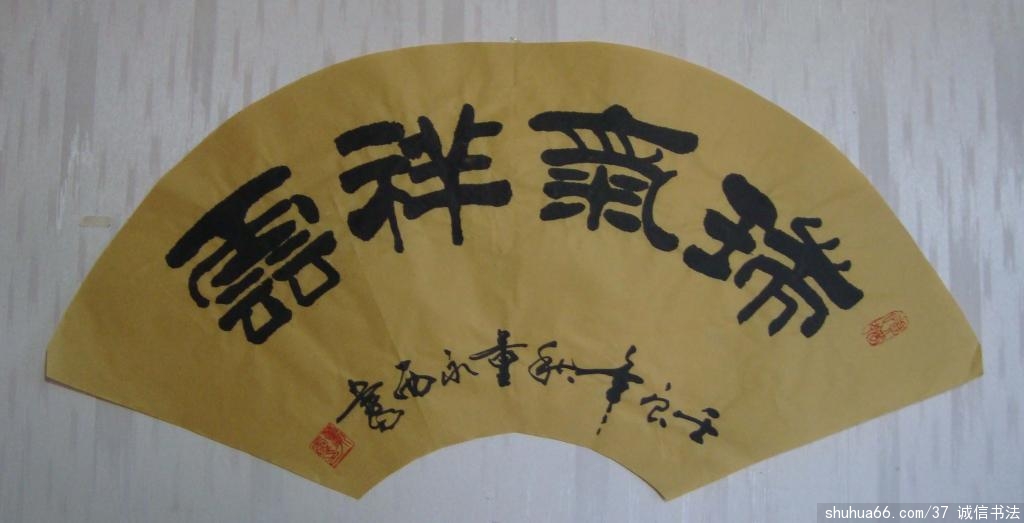 瑞氣祥雲
壬辰年秋董永西書
shuhua66.com/37 诚信书法